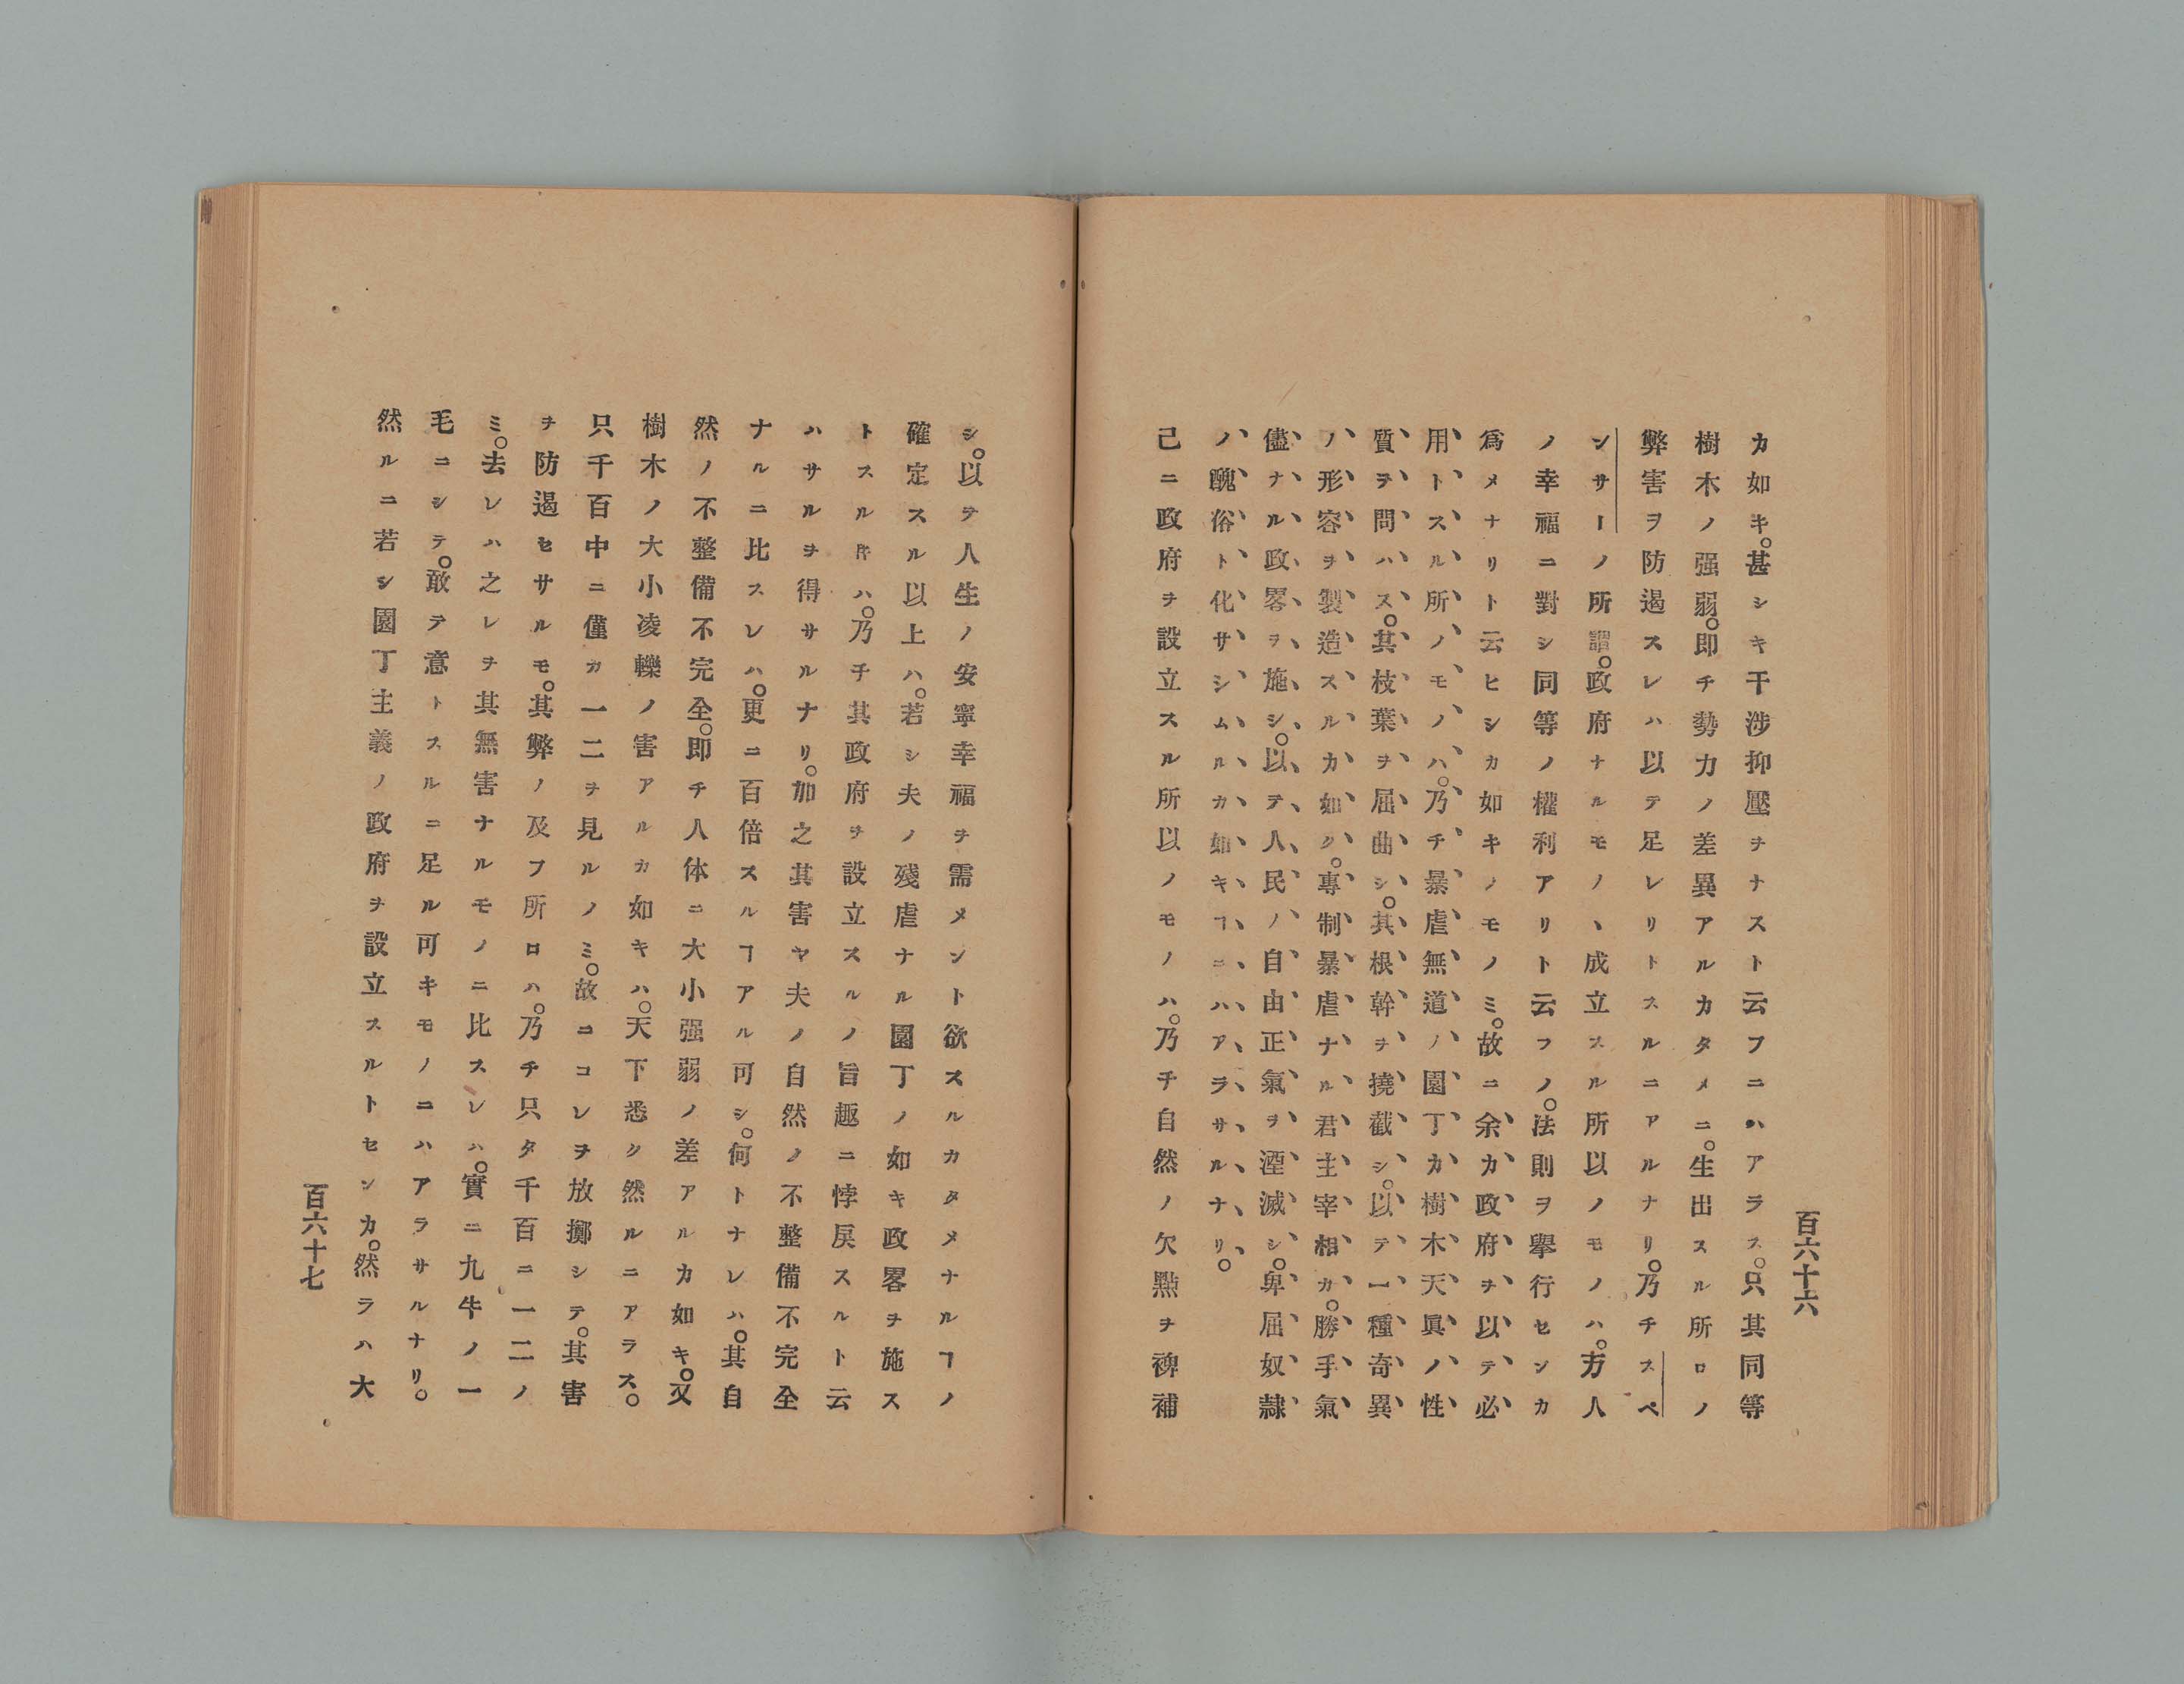 百六十六
カ如キ。甚シキ干渉抑壓ヲナスト云フニハアラス。只其同等
樹木ノ强弱。即チ勢力ノ差異アルカタメニ。生出スル所ロノ
弊害ヲ防遏スレハ以テ足レリトスルニアルナリ。乃チスペ
ンサーノ所謂。政府ナルモノヽ成立スル所以ノモノハ。方人
ノ幸福ニ對シ同等ノ權利アリト云フノ。法則ヲ擧行センカ
爲メナリト云ヒシカ如キノモノミ。故ニ余カ政府ヲ以テ必
用トスル所ノモノハ。乃チ暴虐無道ノ園丁カ樹木天眞ノ性
質ヲ問ハス。其枝葉ヲ屈曲シ。其根幹ヲ撓截シ。以テ一種奇異
ノ形容ヲ製造スルカ如ク。專制暴虐ナル君主宰相カ。勝手氣
儘ナル政畧ヲ施シ。以テ人民ノ自由正氣ヲ湮滅シ。卑屈奴隸
ノ醜俗ト化サシムルカ如キヿニハアラサルナリ。
己ニ政府ヲ設立スル所以ノモノハ。乃チ自然ノ欠點ヲ裨補
シ。以テ人生ノ安寧幸福ヲ需メント欲スルカタメナルヿノ
確定スル以上ハ。若シ夫ノ殘虐ナル園丁ノ如キ政畧ヲ施ス
トスル𪜈ハ。乃チ其政府ヲ設立スルノ旨趣ニ悖戾スルト云
ハサルヲ得サルナリ。加之其害ヤ夫ノ自然ノ不整備不完全
ナルニ比スレハ。更ニ百倍スルヿアル可シ。何トナレハ。其自
然ノ不整備不完全。即チ人体ニ大小强弱ノ差アルカ如キ。又
樹木ノ大小凌轢ノ害アルカ如キハ。天下悉ク然ルニアラス。
只千百中ニ僅カ一二ヲ見ルノミ。故ニコレヲ放擲シテ。其害
ヲ防遏セサルモ。其弊ノ及フ所ロハ。乃チ只タ千百ニ一二ノ
ミ。去レハ之レヲ其無害ナルモノニ比スレハ。實ニ九牛ノ一
毛ニシテ。敢テ意トスルニ足ル可キモノニハアラサルナリ。
然ルニ若シ園丁主義ノ政府ヲ設立スルトセンカ。然ラハ大
百六十七